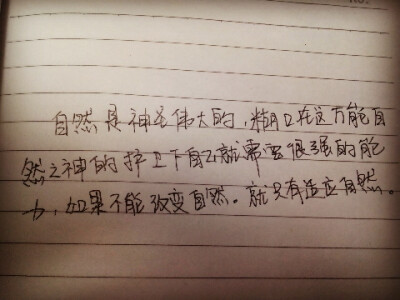 自然是神圣伟大的，糊口在这万能自
然之神的护卫下自己就需要很强的能
力，如果不能改变自然。就只有适应自然。